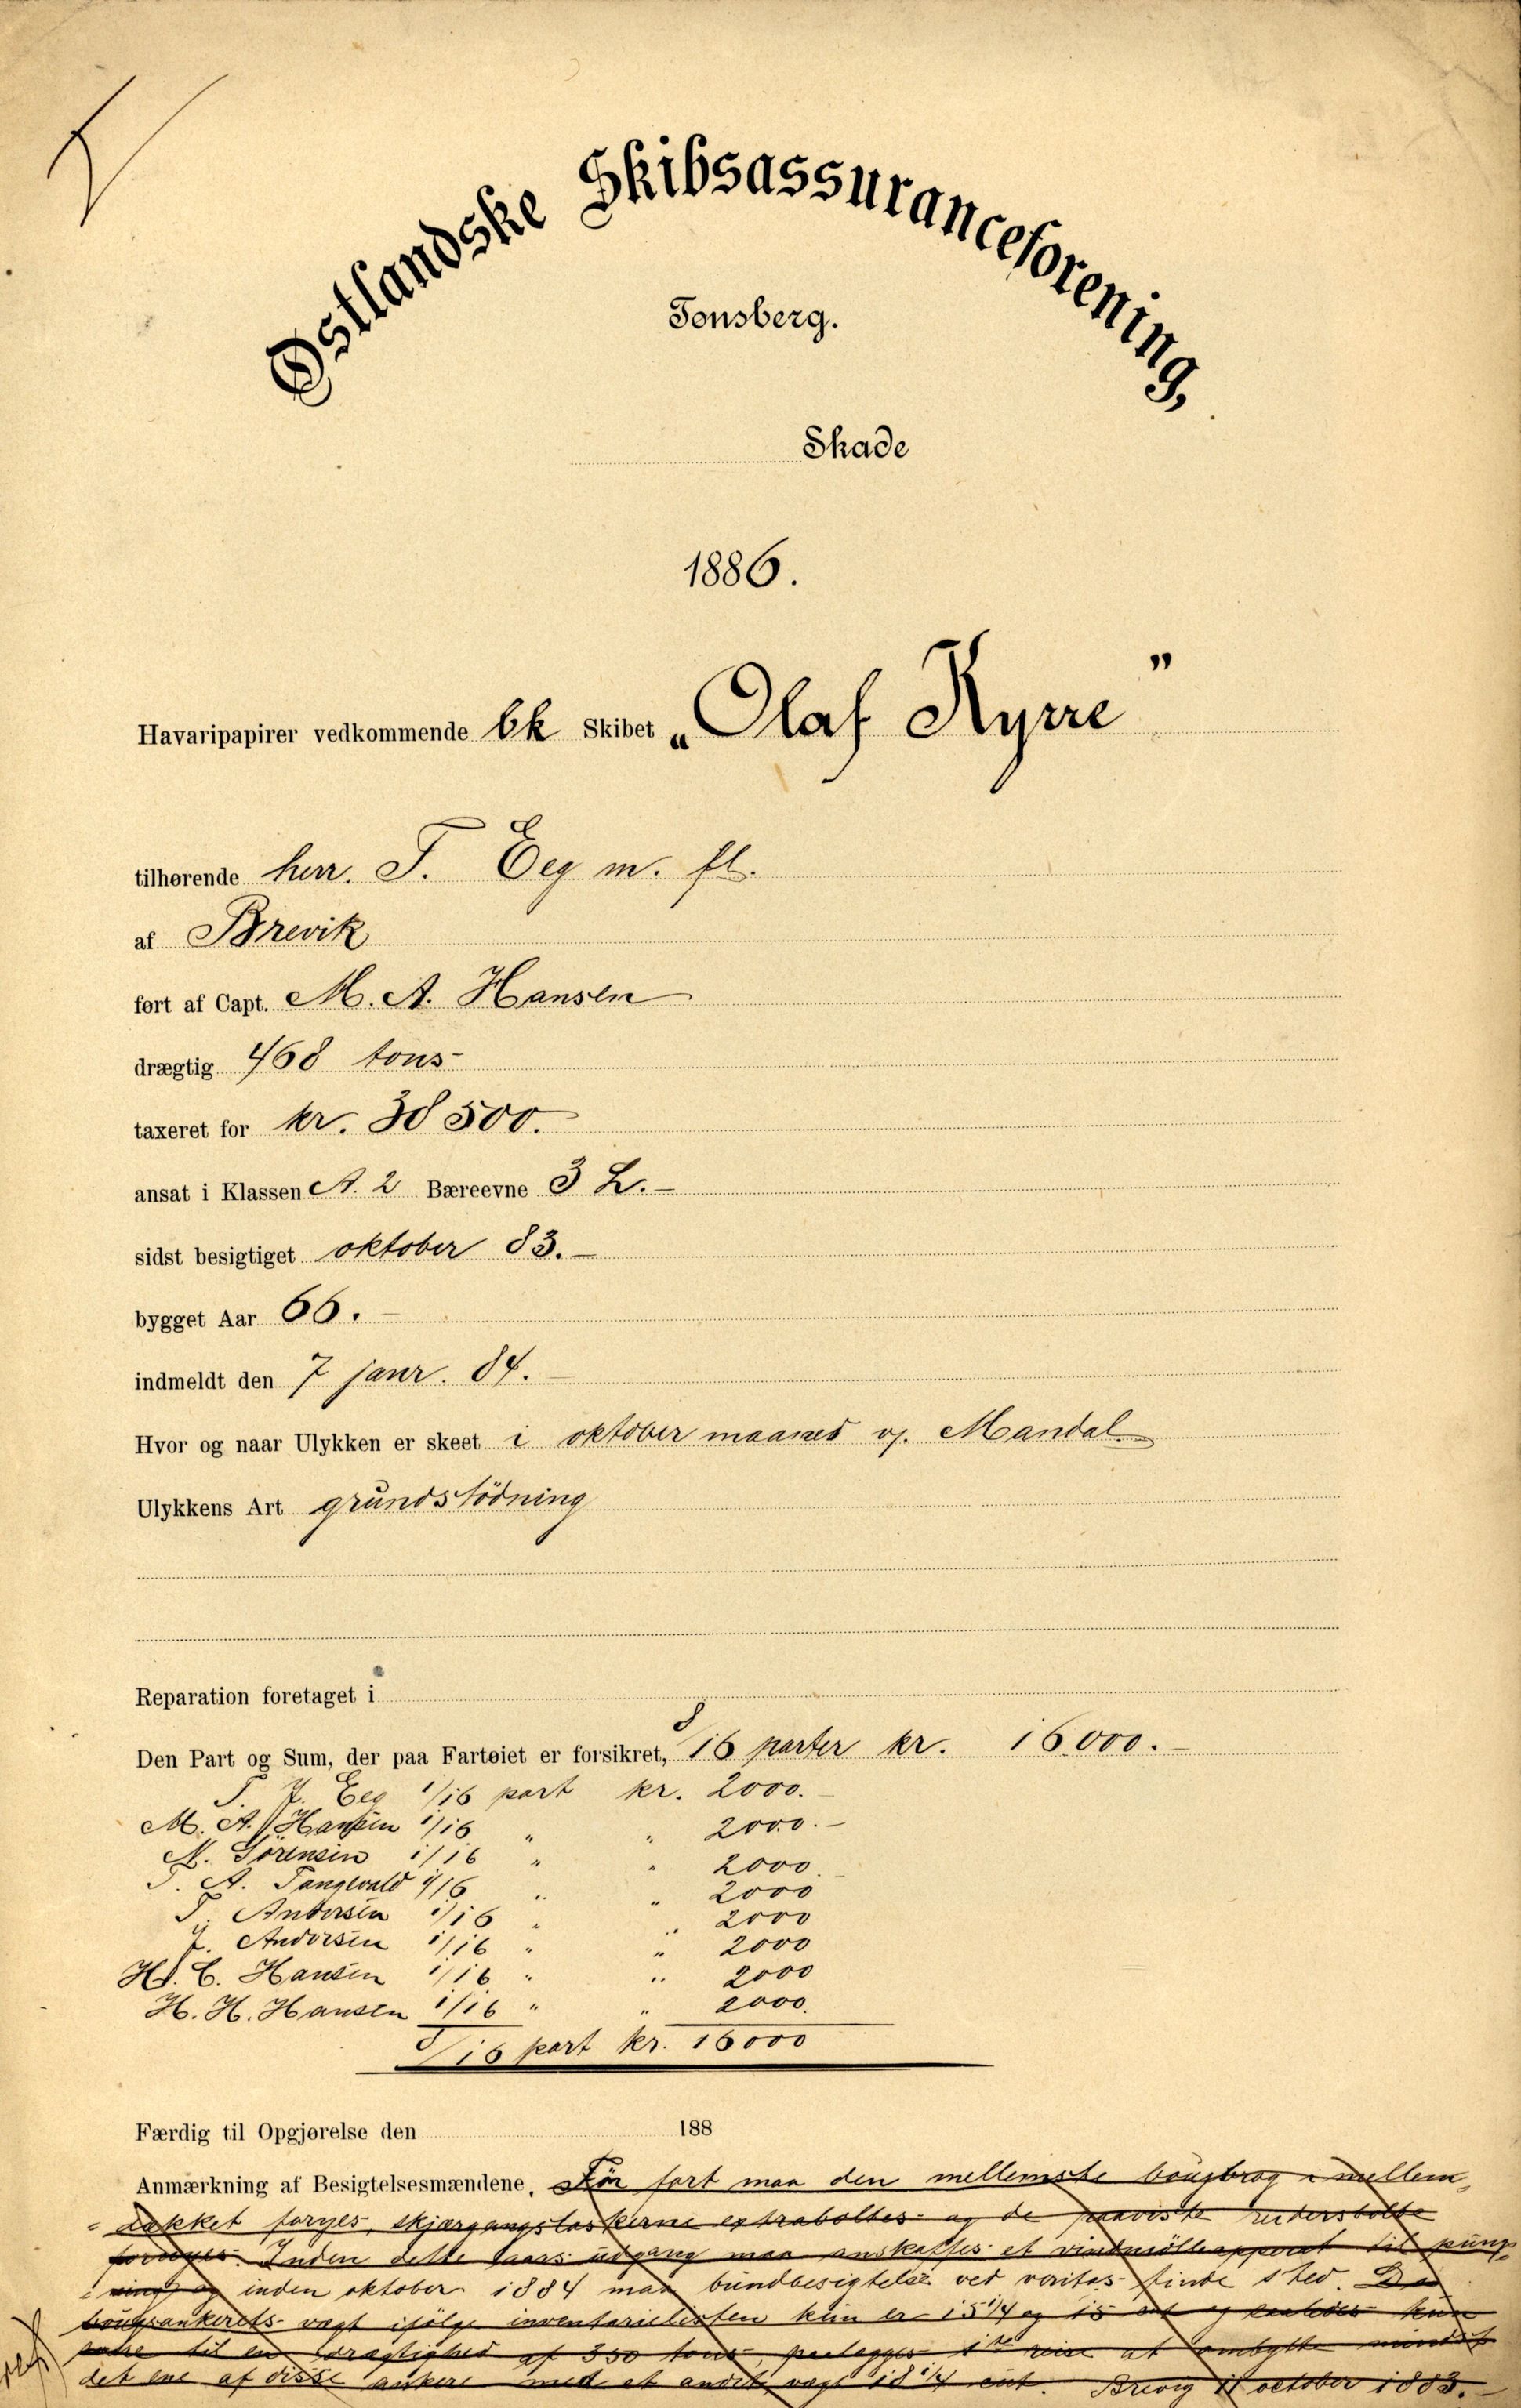 Østlandske Skibsassuranceforening,
Tønsberg.
Skade
1886.
Havaripapirer vedkommende bk Skibet „Olaf Kyrre”
tilhørende herr. T. Eeg m. fl.
af Brevik
ført af Capt. M. A. Hansen
drægtig 468 tons
taxeret for kr. 38500.
ansat i Klassen A. 2 Bæreevne 3 L.
sidst besigtiget oktober 83.
bygget Aar 66.
indmeldt den 7 janr. 84.
Hvor og naar Ulykken er skeet i oktober maaned v. Mandal
Ulykkens Art grundstödning
Reparation foretaget i
Den Part og Sum, der paa Fartøiet er forsikret, 8/16 parter kr. 16000.
T. J. Eeg 1/16 part kr. 2000.
M. A. Hansen 1/16 " " 2000.
N. Sörensen 1/16 " " 2000.
T. A. Tangevald 1/16 " " 2000
T. Andersen 1/16 " " 2000
J. Andersen 1/16 " " 2000
H. C. Hansen 1/16 " " 2000
H. H. Hansen 1/16 " " 2000.
8/16 part kr. 16000
Færdig til Opgjørelse den 188
Anmærkning af Besigtelsesmændene. För fart maa den mellemste bougbrog i mellem-
dækket fornyes, skjærgangslaskerne extraboltes og de paaviste
fornyes. Inden dette aars udgang maa anskaffes et vindmölleapparat til pump-
ning og inden oktober 1884 maa bundbesigtelse ved veritas finde sted. De
bougankerets vægt ifölge inventarielisten kun er 15 1/4 og 15 cnt og saaledes kun
til en drægtighed af 350 tons, paalægges 1ste reise at ombytte mindst
det ene af disse ankere med et andet, vægt 18 1/4 cnt. Brevig 11 october 1883.